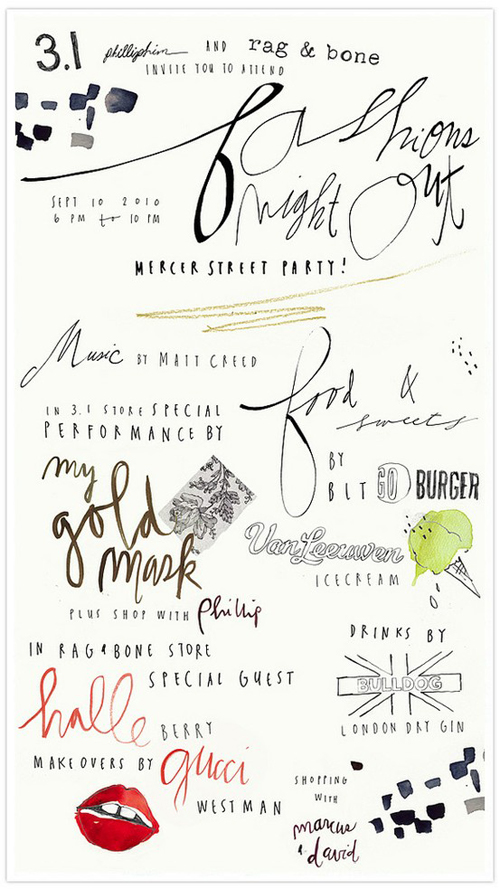 3.1 phillip lim AND rag & bone
INVITE YOU TO ATTEND
fashions
night out
SEPT 10 2010
6 PM to 10 PM
MERCER STREET PARTY!
Music BY MATT CREED
IN 3.1 STORE SPECIAL
PERFORMANCE BY
my
gold
mask
PLUS SHOP WITH Phillip
food &
sweets
BY
BLT GO BURGER
Van Leeuwen
ICECREAM
DRINKS BY
BULLDOG
LONDON DRY GIN
IN RAG & BONE STORE
SPECIAL GUEST
halle BERRY
MAKEOVERS BY gucci
WESTMAN
SHOPPING
WITH
marcus
& david